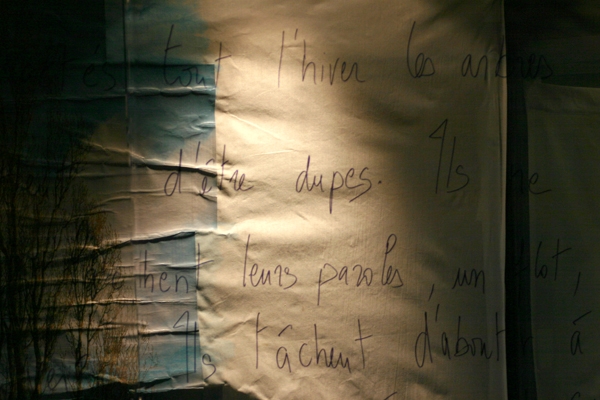 tout l'hiver les arbres
d'être dupes. Ils ne
leurs paroles, un flot,
Ils tâchent d'abort à